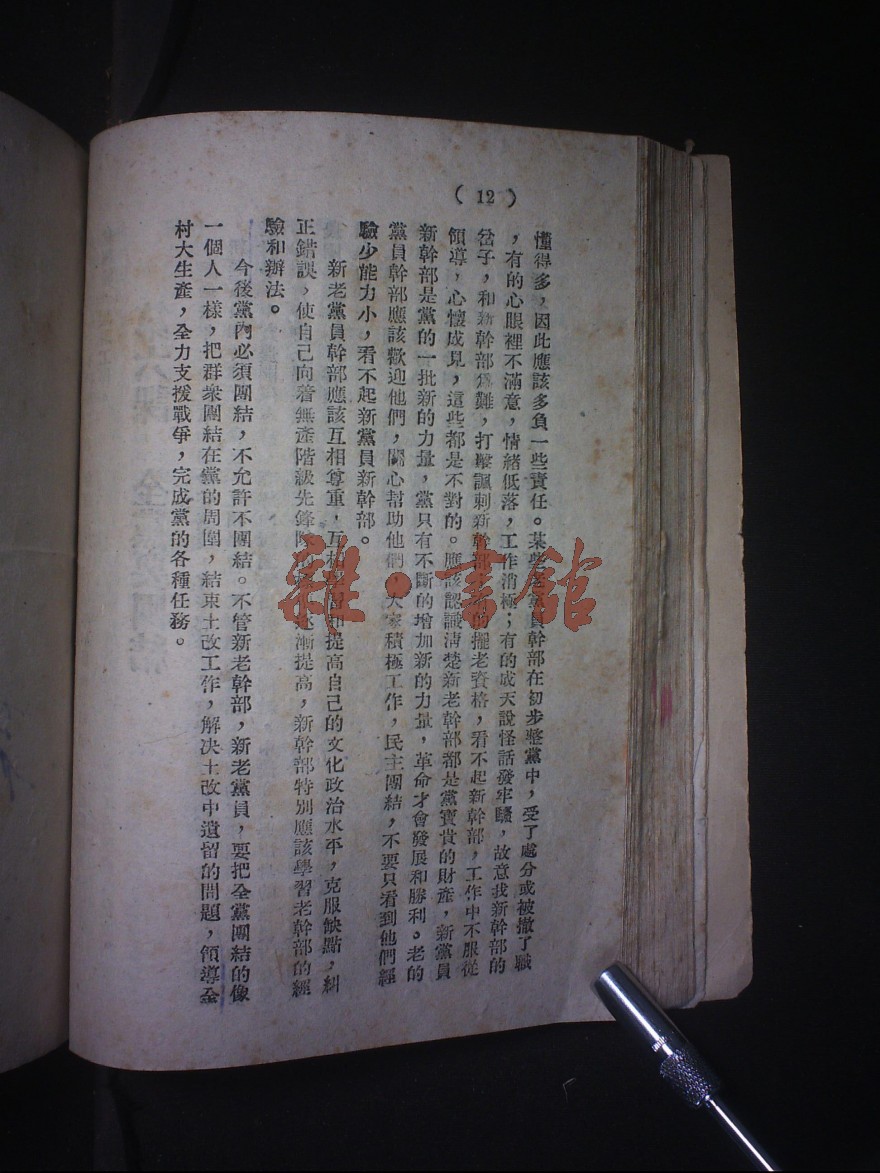 ( 12 )
懂得多，因此應該多負一些責任。某些老黨員幹部在初步整黨中，受了處分或被撤了職
，有的心眼裡不滿意，情緒低落，工作消極；有的成天說怪話發牢騷，故意找新幹部的
岔子，和新幹部為難，打擊諷刺新幹部；有的擺老資格，看不起新幹部，工作中不服從
領導，心懷成見，這些都是不對的。應該認識清楚新老幹部都是黨寶貴的財產，新黨員
新幹部是黨的一批新的力量，黨只有不斷的增加新的力量，革命才會發展和勝利。老的
黨員幹部應該歡迎他們，關心幫助他們，大家積極工作，民主團結，不要只看到他們經
驗少能力小，看不起新黨員新幹部。
新老黨員幹部應該互相尊重，互相學習和提高自己的文化政治水平，克服缺點，糾
正錯誤，使自己向着無產階級先鋒隊的逐漸提高，新幹部特別應該學習老幹部的經
驗和辦法。
今後黨內必須團結，不允許不團結。不管新老幹部，新老黨員，要把全黨團結的像
一個人一樣，把群衆團結在黨的周圍，結束土改工作，解決土改中遺留的問題，領導全
村大生產，全力支援戰爭，完成黨的各種任務。
雜·書館